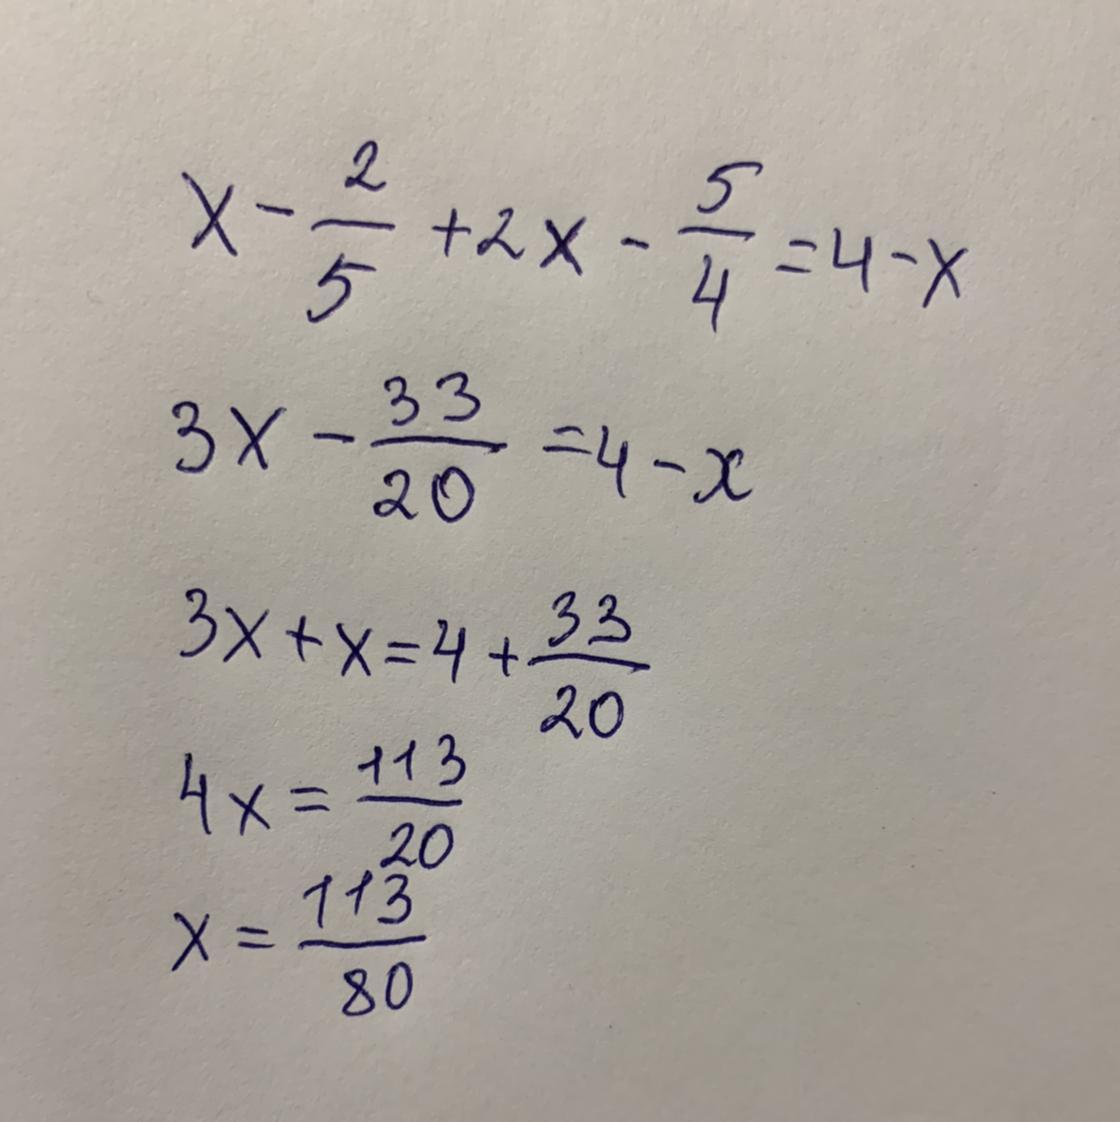 x - 2/5 + 2x - 5/4 = 4 - x
3x - 33/20 = 4 - x
3x + x = 4 + 33/20
4x = 113/20
x = 113/80